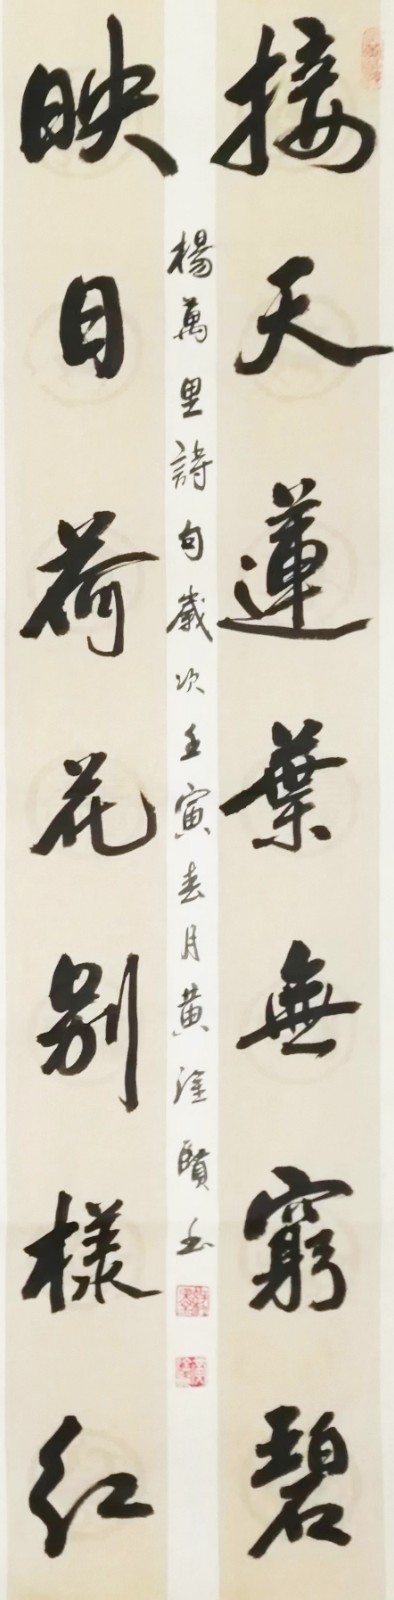 接天蓮葉無窮碧
映目荷花别樣红
楊萬里詩句歲次壬寅春月黄淦頤书